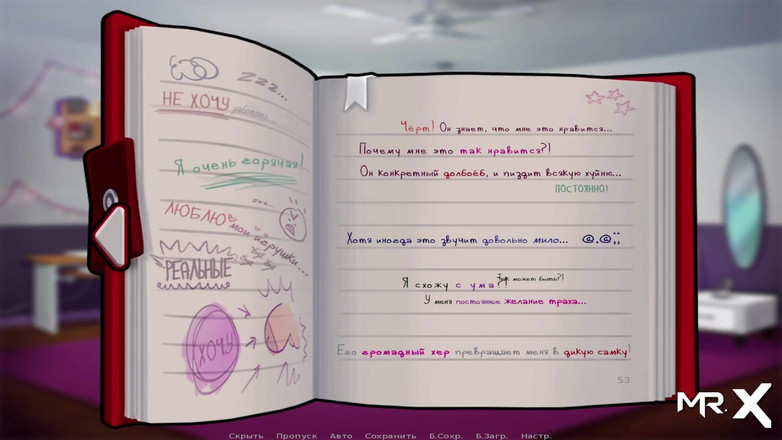 zzz...
НЕ ХОЧУ работать
Я очень горячая!
ЛЮБЛЮ мои игрушки...
РЕАЛЬНЫЕ
ХОЧУ
Чёрт! Он знает, что мне это нравится...
Почему мне это так нравится?!
Он конкретный долбоёб, и пиздит всякую хуйню...
ПОСТОЯННО!
Хотя иногда это звучит довольно мило... @.@;;
Так может быть?!
Я схожу с ума?!
У меня постоянное желание траха...
Его громадный хер превращает меня в дикую самку!
53
MR. X
Скрыть Пропуск Авто Сохранить Б.Сохр. Б.Загр. Настр.